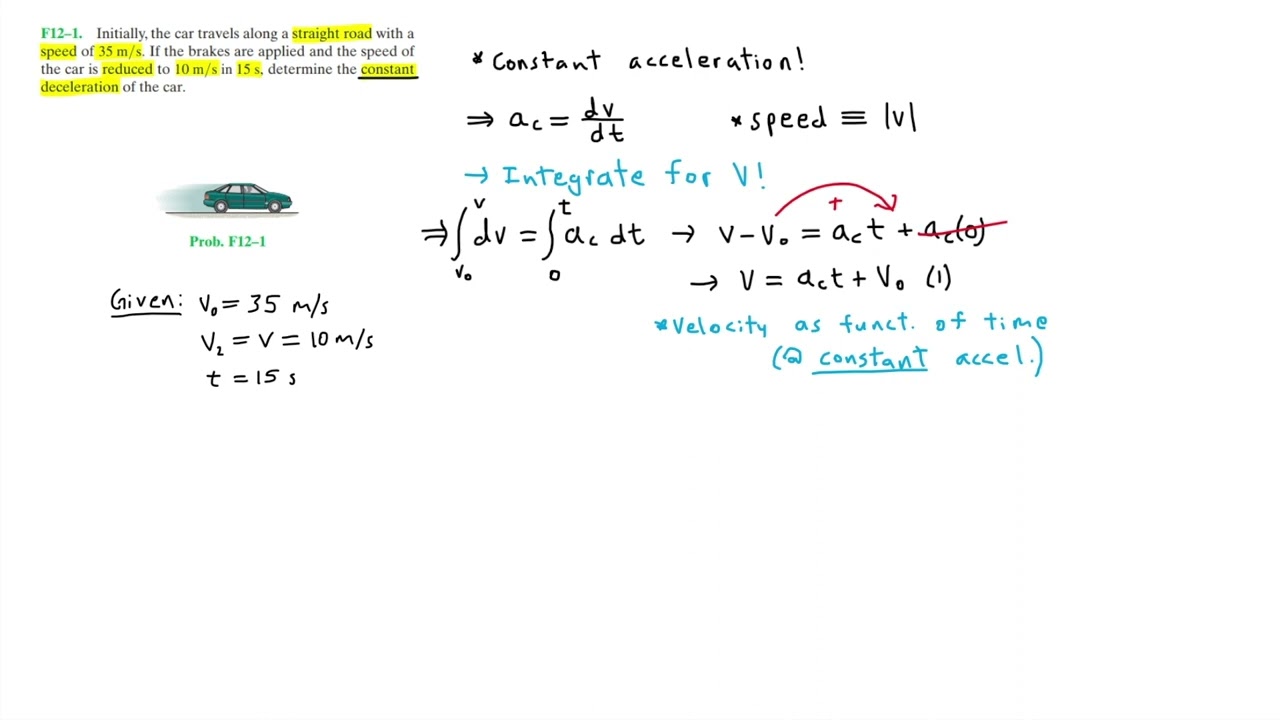 F12–1. Initially, the car travels along a straight road with a
speed of 35 m/s. If the brakes are applied and the speed of
the car is reduced to 10 m/s in 15 s, determine the constant
deceleration of the car.
Prob. F12–1
Given: v₀ = 35 m/s
v₂ = v = 10 m/s
t = 15 s
* Constant acceleration!
⇒ a_c = dv/dt * speed ≡ |v|
→ Integrate for v!
⇒ ∫_{v₀}^{v} dv = ∫_{0}^{t} a_c dt → v – v₀ = a_c t + a_c(0)
+
→ v = a_c t + v₀ (1)
* Velocity as funct. of time
(@ constant accel.)